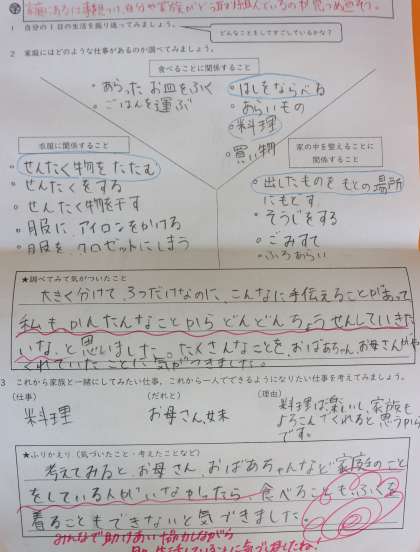 家庭にある仕事
1 自分の1日の生活を振り返ってみましょう。
どんなことをしてすごしているかな?
2 家庭にはどのような仕事があるのか調べてみましょう。
食べることに関係すること
・あらったお皿をふく
・ごはんを運ぶ
・はしをならべる
・あらいもの
・料理
・買い物
衣服に関係すること
・せんたく物をたたむ
・せんたくをする
・せんたく物を干す
・服に、アイロンをかける
・服を、クロゼットにしまう
家の中を整えることに
関係すること
・出したものをもとの場所
にもどす
・そうじをする
・ごみすて
・ふろあらい
★調べてみて気がついたこと
大きく分けて、3つだけなのに、こんなに手伝えることがあって
私もかんたんなことからどんどんちょうせんしていきた
いな、と思いました。たくさんなことを、おばあちゃん、お母さんがや
くれていたことに気がつきました。
3 これから家族と一緒にしてみたい仕事、これから一人でできるようになりたい仕事を考えてみましょう。
(仕事) (だれと) (理由)
料理 お母さん、妹
料理は楽しいし、家族も
よろこんでくれると思うから
です。
★ふりかえり(気づいたこと・考えたことなど)
考えてみると、お母さん、おばあちゃんなど家庭のこと
をしている人がいなかったら、食べることも、ふくを
着ることもできないと気づきました。
みんなで助けあい協力しながら
生活していることに気づきましたね!